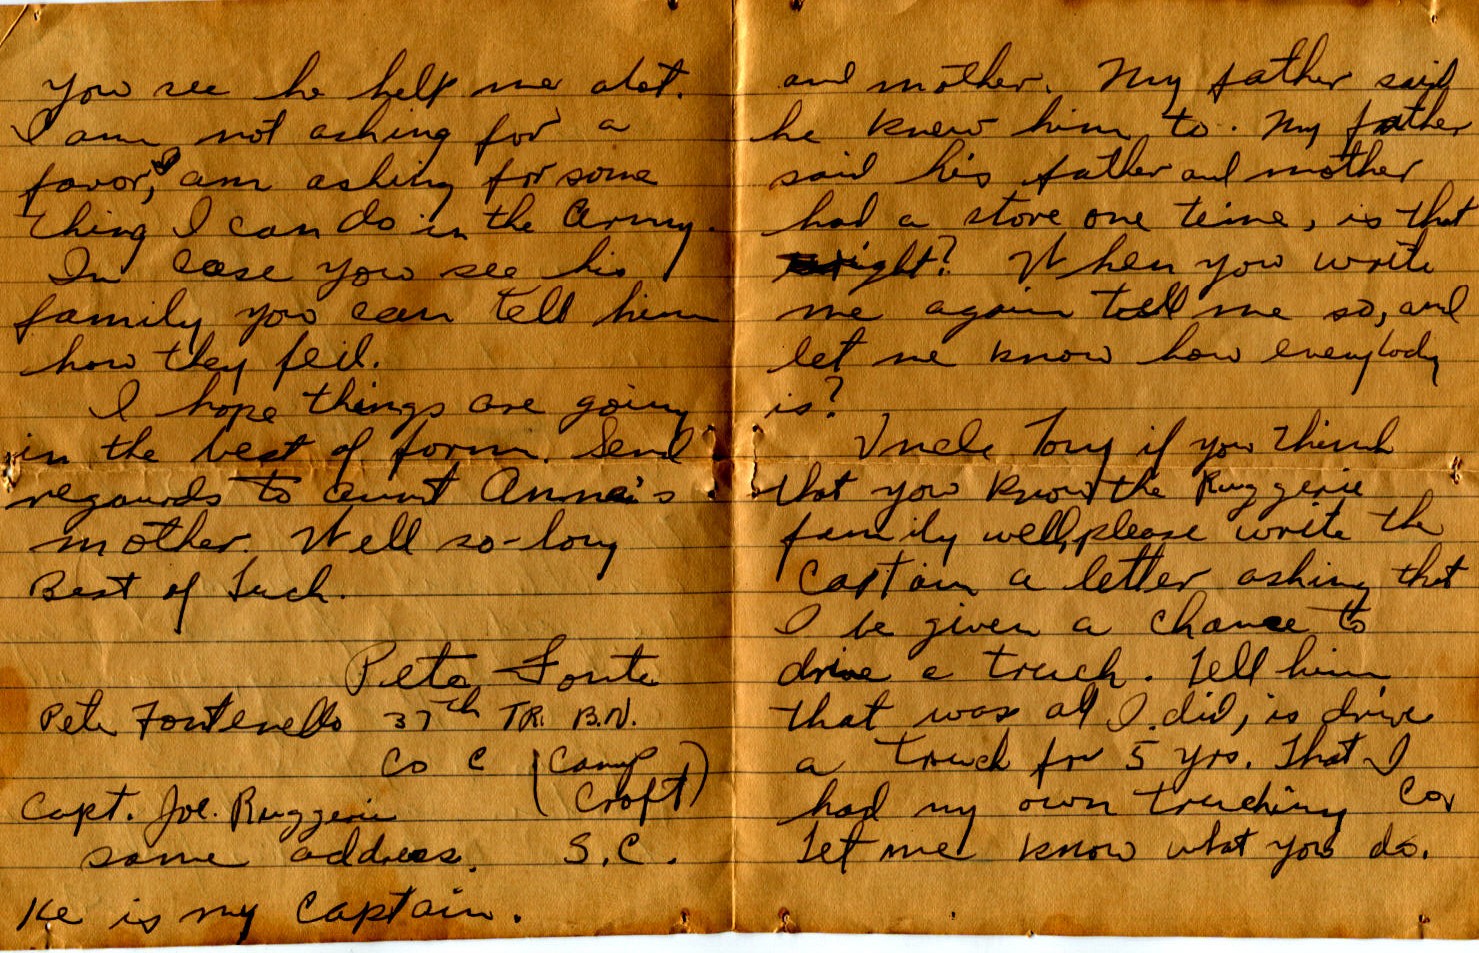 You see he help me alot.
I am not asking for a
favor, I am asking for some
thing I can do in the Army.
In case you see his
family you can tell him
how they feil.
I hope things are going
in the best of form. Send
regards to aunt Anna's
mother. Well so-long
Best of Luck.
Pete Fonte
Pete Fontenello 37th TR. B.N.
Co C (Camp
Croft)
Capt. Joe. Ruggerie
same address. S.C.
He is my Captain.
and mother. My father said
he knew him to. My father
said his father and mother
had a store one time, is that
right? When you write
me again tell me so, and
let me know how everybody
is?
Uncle Tony if you think
that you know the Ruggerie
family well, please write the
Captain a letter asking that
I be given a chance to
drive a truck. Tell him
that was all I did, is drive
a truck for 5 yrs. That I
had my own trucking Co,
Let me know what you do.